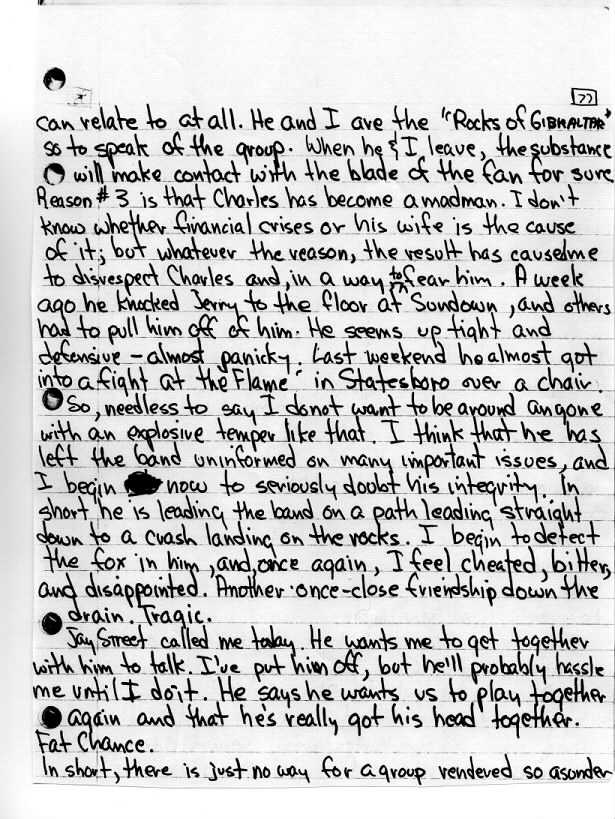 77
can relate to at all. He and I are the "Rocks of GIBRALTAR"
so to speak of the group. When he & I leave, the substance
will make contact with the blade of the fan for sure
Reason # 3 is that Charles has become a madman. I don't
know whether financial crises or his wife is the cause
of it; but whatever the reason, the result has caused me
to disrespect Charles and, in a way, to fear him. A week
ago he knocked Jerry to the floor at Sundown, and others
had to pull him off of him. He seems up tight and
defensive - almost panicky. Last weekend he almost got
into a fight at the "Flame" in Statesboro over a chair.
So, needless to say I do not want to be around anyone
with an explosive temper like that. I think that he has
left the band uninformed on many important issues, and
I begin now to seriously doubt his integrity. In
short he is leading the band on a path leading straight
down to a crash landing on the rocks. I begin to detect
the fox in him, and, once again, I feel cheated, bitter,
and disappointed. Another once-close friendship down the
drain. Tragic.
Jay Street called me today. He wants me to get together
with him to talk. I've put him off, but he'll probably hassle
me until I do it. He says he wants us to play together
again and that he's really got his head together.
Fat Chance.
In short, there is just no way for a group rendered so asunder